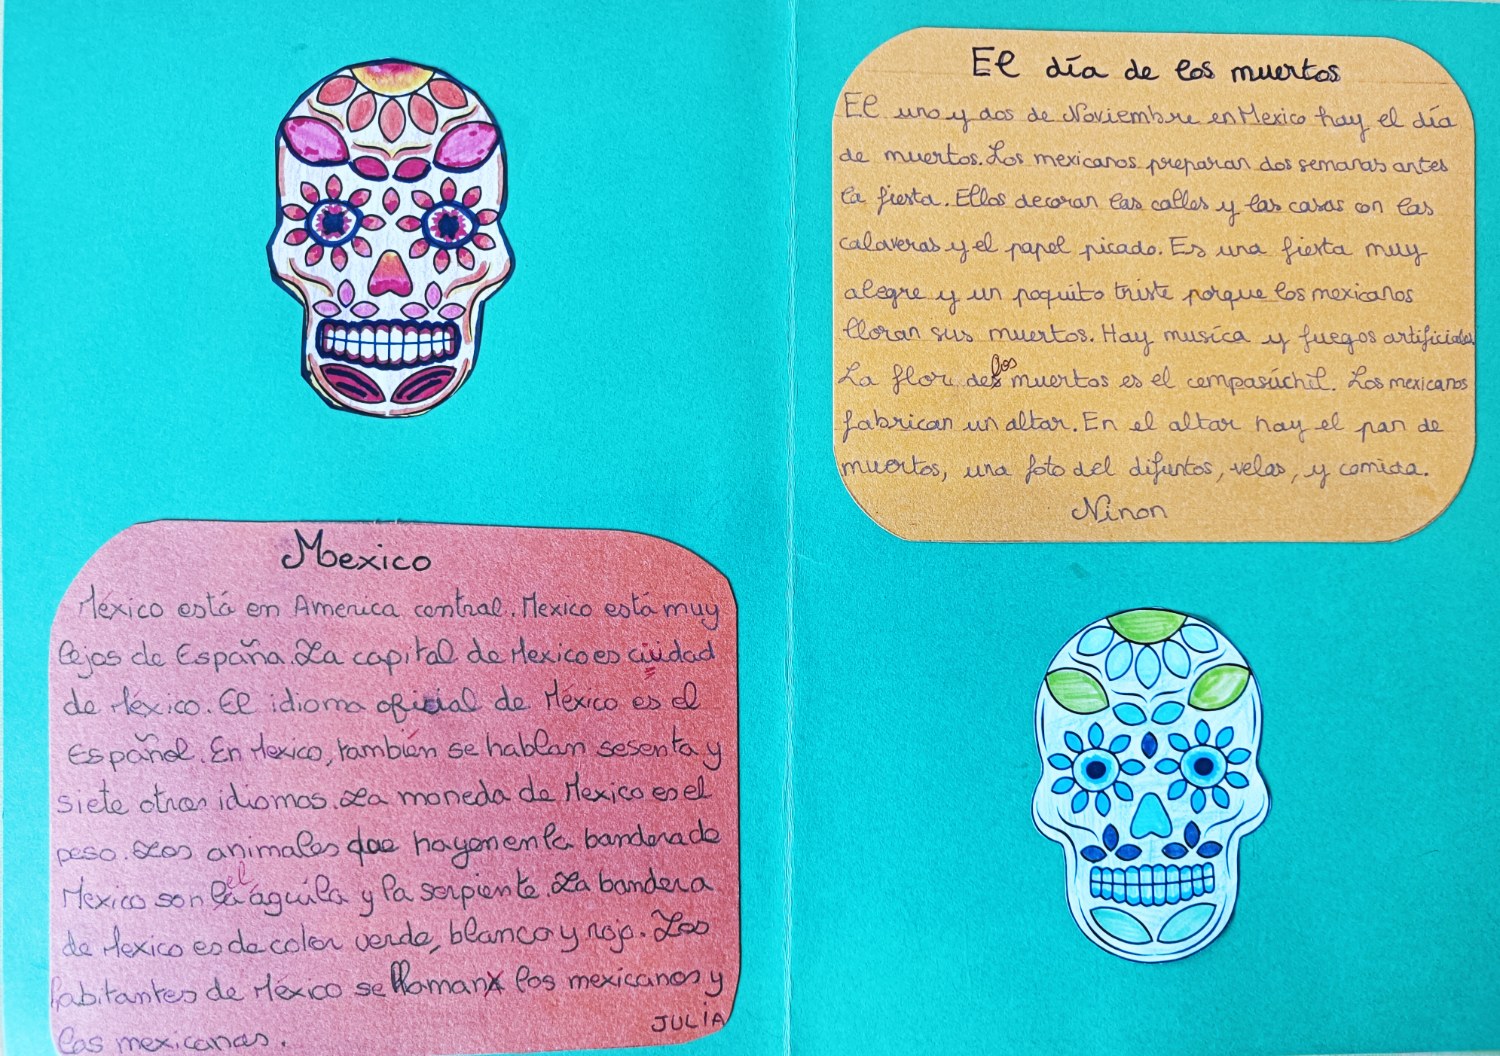 Mexico
México está en America central. Mexico está muy
lejos de España. La capital de Mexico es ciudad
de México. El idioma oficial de México es el
Español. En Mexico, también se hablan sesenta y
siete otros idiomas. La moneda de Mexico es el
peso. Los animales que hay en la bandera de
Mexico son el águila y la serpiente. La bandera
de Mexico es de color verde, blanco y rojo. Los
habitantes de México se llaman los mexicanos y
las mexicanas.
JULIA
El día de los muertos
El uno y dos de Noviembre en Mexico hay el día
de muertos. Los mexicanos preparan dos semanas antes
la fiesta. Ellos decoran las calles y las casas con las
calaveras y el papel picado. Es una fiesta muy
alegre y un poquito triste porque los mexicanos
lloran sus muertos. Hay musíca y fuegos artificiales.
La flor de los muertos es el cempasúchil. Los mexicanos
fabrican un altar. En el altar hay el pan de
muertos, una foto del difuntos, velas, y comida.
Ninon